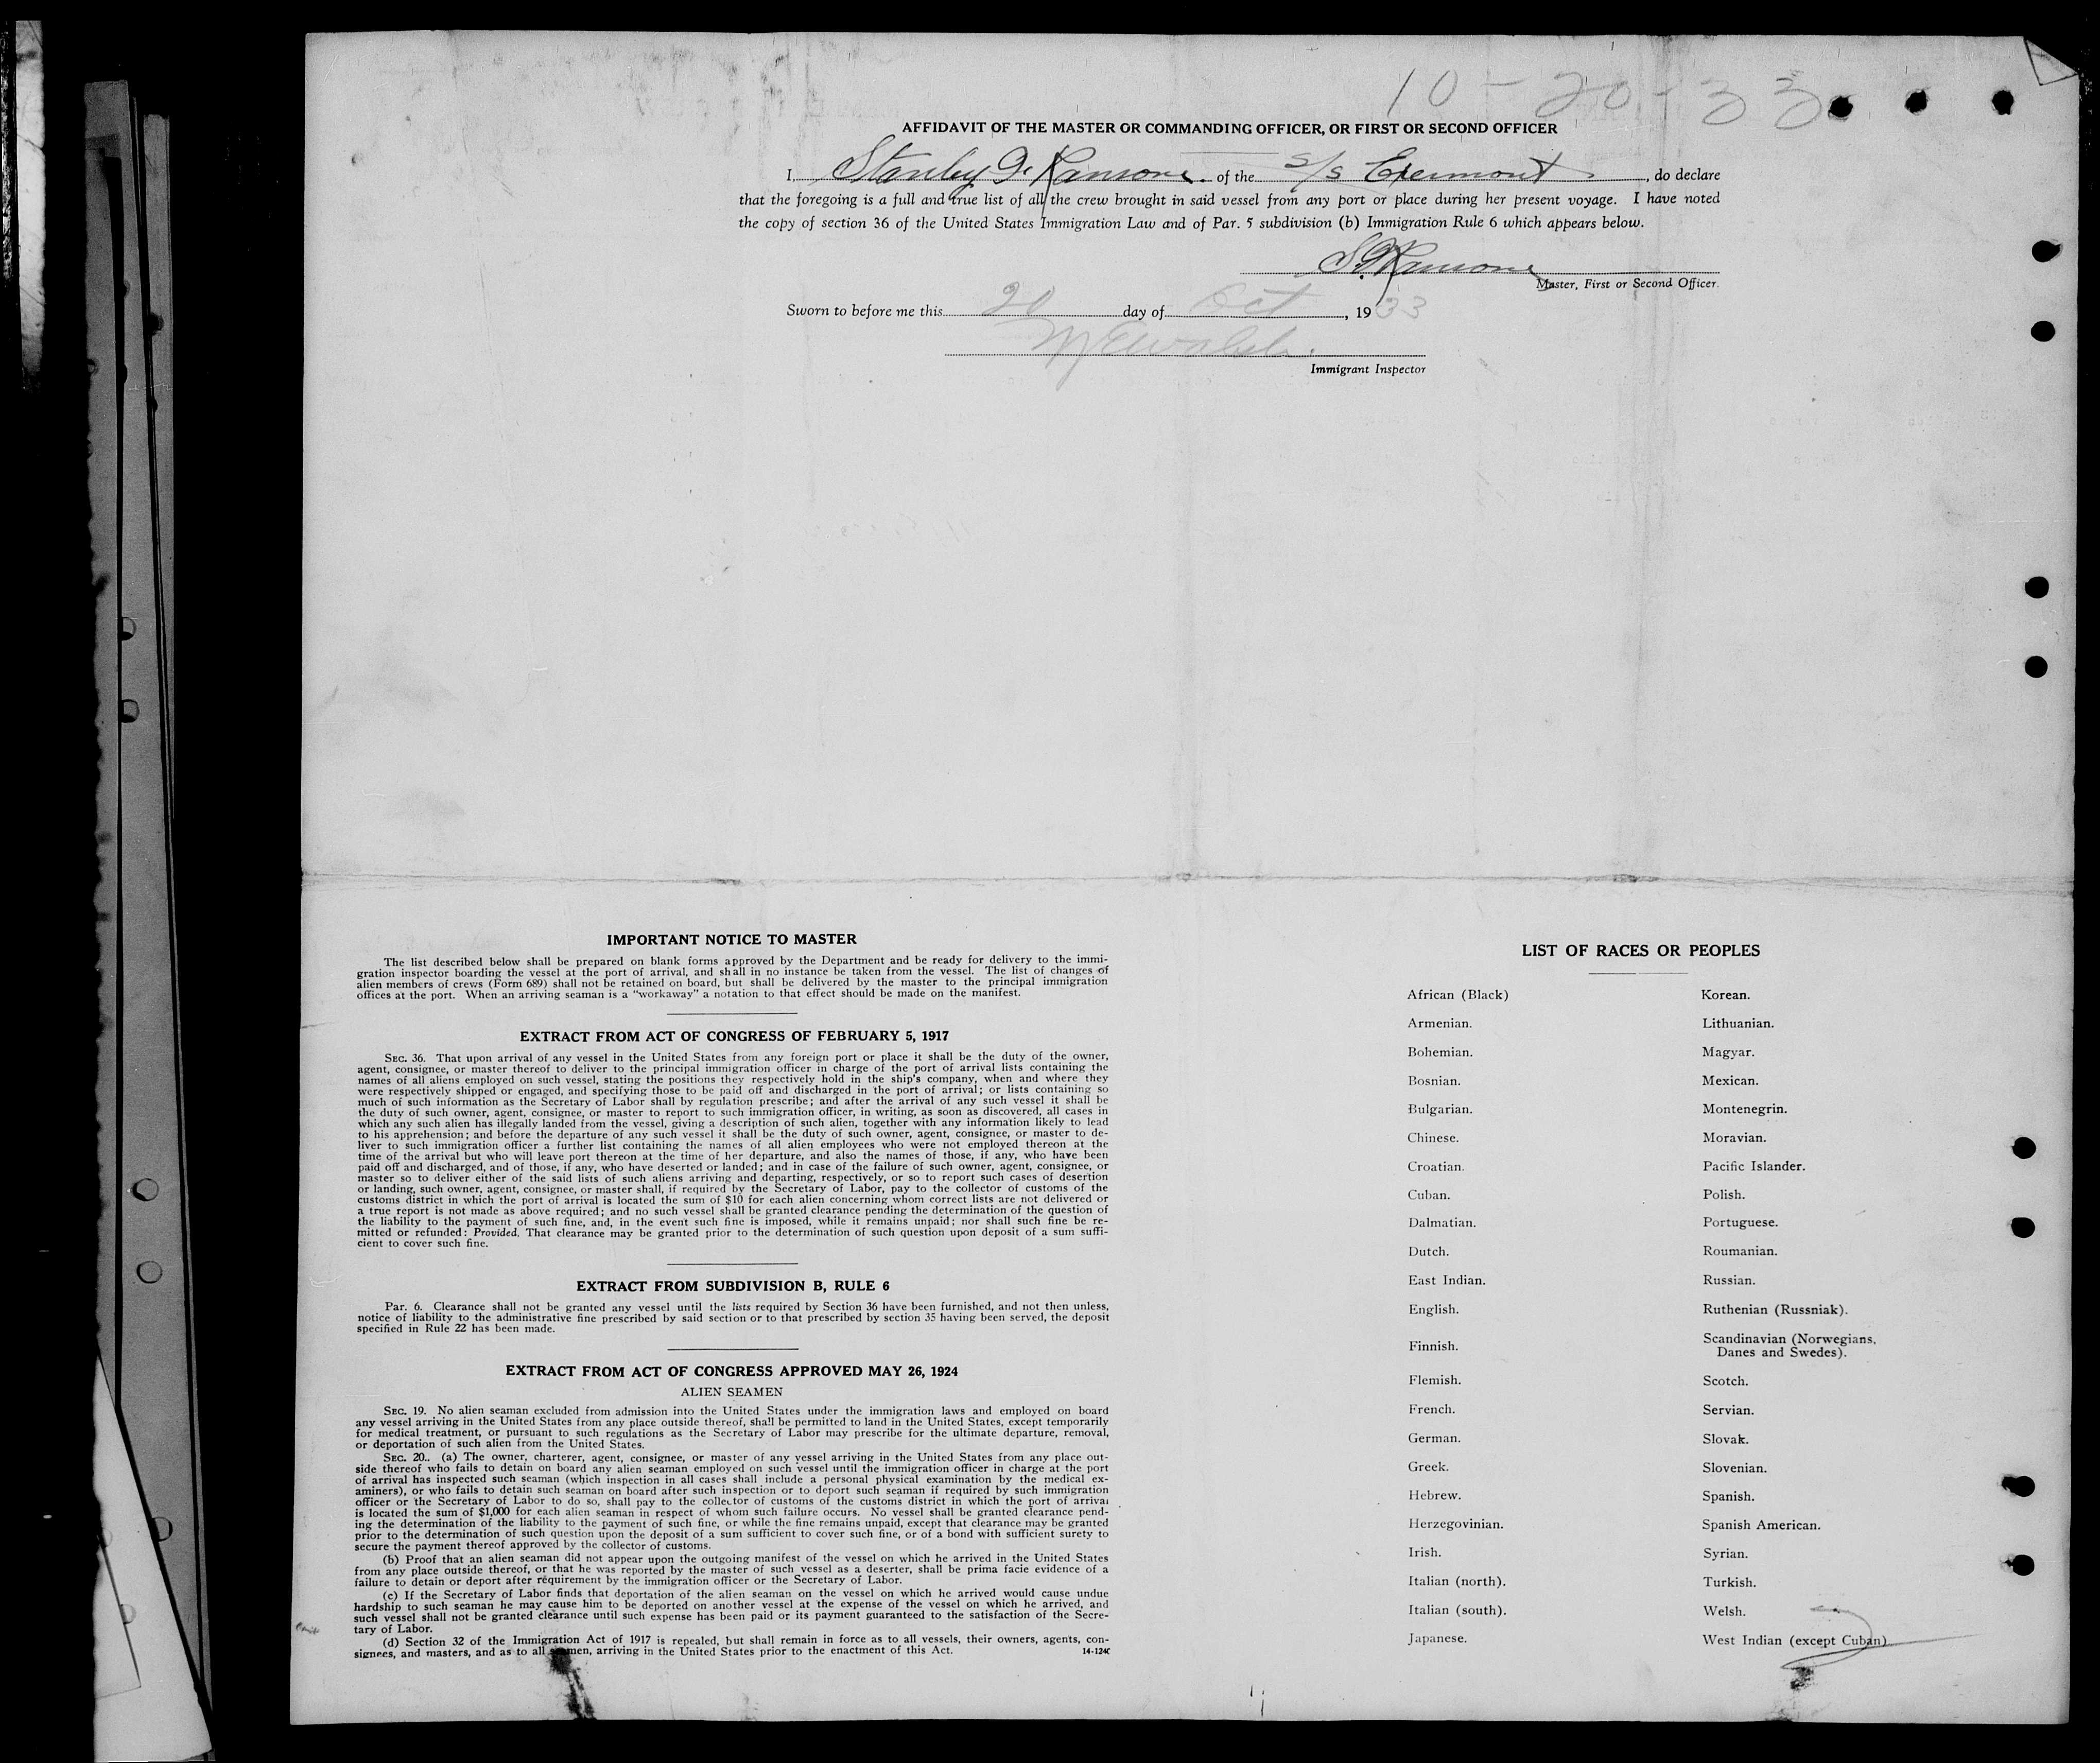 10-20-33
AFFIDAVIT OF THE MASTER OR COMMANDING OFFICER, OR FIRST OR SECOND OFFICER
I, Stanley Ransone of the S/S Exermont, do declare
that the foregoing is a full and true list of all the crew brought in said vessel from any port or place during her present voyage. I have noted
the copy of section 36 of the United States Immigration Law and of Par. 5 subdivision (b) Immigration Rule 6 which appears below.
Ransone
Master, First or Second Officer.
Sworn to before me this 20 day of Oct, 1933
Immigrant Inspector
IMPORTANT NOTICE TO MASTER
The list described below shall be prepared on blank forms approved by the Department and be ready for delivery to the immi-
gration inspector boarding the vessel at the port of arrival, and shall in no instance be taken from the vessel. The list of changes of
alien members of crews (Form 689) shall not be retained on board, but shall be delivered by the master to the principal immigration
offices at the port. When an arriving seaman is a "workaway" a notation to that effect should be made on the manifest.
EXTRACT FROM ACT OF CONGRESS OF FEBRUARY 5, 1917
SEC. 36. That upon arrival of any vessel in the United States from any foreign port or place it shall be the duty of the owner,
agent, consignee, or master thereof to deliver to the principal immigration officer in charge of the port of arrival lists containing the
names of all aliens employed on such vessel, stating the positions they respectively hold in the ship's company, when and where they
were respectively shipped or engaged, and specifying those to be paid off and discharged in the port of arrival; or lists containing so
much of such information as the Secretary of Labor shall by regulation prescribe; and after the arrival of any such vessel it shall be
the duty of such owner, agent, consignee, or master to report to such immigration officer, in writing, as soon as discovered, all cases in
which any such alien has illegally landed from the vessel, giving a description of such alien, together with any information likely to lead
to his apprehension; and before the departure of any such vessel it shall be the duty of such owner, agent, consignee, or master to de-
liver to such immigration officer a further list containing the names of all alien employees who were not employed thereon at the
time of the arrival but who will leave port thereon at the time of her departure, and also the names of those, if any, who have been
paid off and discharged, and of those, if any, who have deserted or landed; and in case of the failure of such owner, agent, consignee, or
master so to deliver either of the said lists of such aliens arriving and departing, respectively, or so to report such cases of desertion
or landing, such owner, agent, consignee, or master shall, if required by the Secretary of Labor, pay to the collector of customs of the
customs district in which the port of arrival is located the sum of $10 for each alien concerning whom correct lists are not delivered or
a true report is not made as above required; and no such vessel shall be granted clearance pending the determination of the question of
the liability to the payment of such fine, and, in the event such fine is imposed, while it remains unpaid; nor shall such fine be re-
mitted or refunded: Provided, That clearance may be granted prior to the determination of such question upon deposit of a sum suffi-
cient to cover such fine.
EXTRACT FROM SUBDIVISION B, RULE 6
Par. 6. Clearance shall not be granted any vessel until the lists required by Section 36 have been furnished, and not then unless,
notice of liability to the administrative fine prescribed by said section or to that prescribed by section 35 having been served, the deposit
specified in Rule 22 has been made.
EXTRACT FROM ACT OF CONGRESS APPROVED MAY 26, 1924
ALIEN SEAMEN
SEC. 19. No alien seaman excluded from admission into the United States under the immigration laws and employed on board
any vessel arriving in the United States from any place outside thereof, shall be permitted to land in the United States, except temporarily
for medical treatment, or pursuant to such regulations as the Secretary of Labor may prescribe for the ultimate departure, removal,
or deportation of such alien from the United States.
SEC. 20.. (a) The owner, charterer, agent, consignee, or master of any vessel arriving in the United States from any place out-
side thereof who fails to detain on board any alien seaman employed on such vessel until the immigration officer in charge at the port
of arrival has inspected such seaman (which inspection in all cases shall include a personal physical examination by the medical ex-
aminers), or who fails to detain such seaman on board after such inspection or to deport such seaman if required by such immigration
officer or the Secretary of Labor to do so, shall pay to the collector of customs of the customs district in which the port of arrival
is located the sum of $1,000 for each alien seaman in respect of whom such failure occurs. No vessel shall be granted clearance pend-
ing the determination of the liability to the payment of such fine, or while the fine remains unpaid, except that clearance may be granted
prior to the determination of such question upon the deposit of a sum sufficient to cover such fine, or of a bond with sufficient surety to
secure the payment thereof approved by the collector of customs.
(b) Proof that an alien seaman did not appear upon the outgoing manifest of the vessel on which he arrived in the United States
from any place outside thereof, or that he was reported by the master of such vessel as a deserter, shall be prima facie evidence of a
failure to detain or deport after requirement by the immigration officer or the Secretary of Labor.
(c) If the Secretary of Labor finds that deportation of the alien seaman on the vessel on which he arrived would cause undue
hardship to such seaman he may cause him to be deported on another vessel at the expense of the vessel on which he arrived, and
such vessel shall not be granted clearance until such expense has been paid or its payment guaranteed to the satisfaction of the Secre-
tary of Labor.
(d) Section 32 of the Immigration Act of 1917 is repealed, but shall remain in force as to all vessels, their owners, agents, con-
signees, and masters, and as to all seamen, arriving in the United States prior to the enactment of this Act.
LIST OF RACES OR PEOPLES
African (Black)
Armenian.
Bohemian.
Bosnian.
Bulgarian.
Chinese.
Croatian.
Cuban.
Dalmatian.
Dutch.
East Indian.
English.
Finnish.
Flemish.
French.
German.
Greek.
Hebrew.
Herzegovinian.
Irish.
Italian (north).
Italian (south).
Japanese.
Korean.
Lithuanian.
Magyar.
Mexican.
Montenegrin.
Moravian.
Pacific Islander.
Polish.
Portuguese.
Roumanian.
Russian.
Ruthenian (Russniak).
Scandinavian (Norwegians,
Danes and Swedes).
Scotch.
Servian.
Slovak.
Slovenian.
Spanish.
Spanish American.
Syrian.
Turkish.
Welsh.
West Indian (except Cuban)